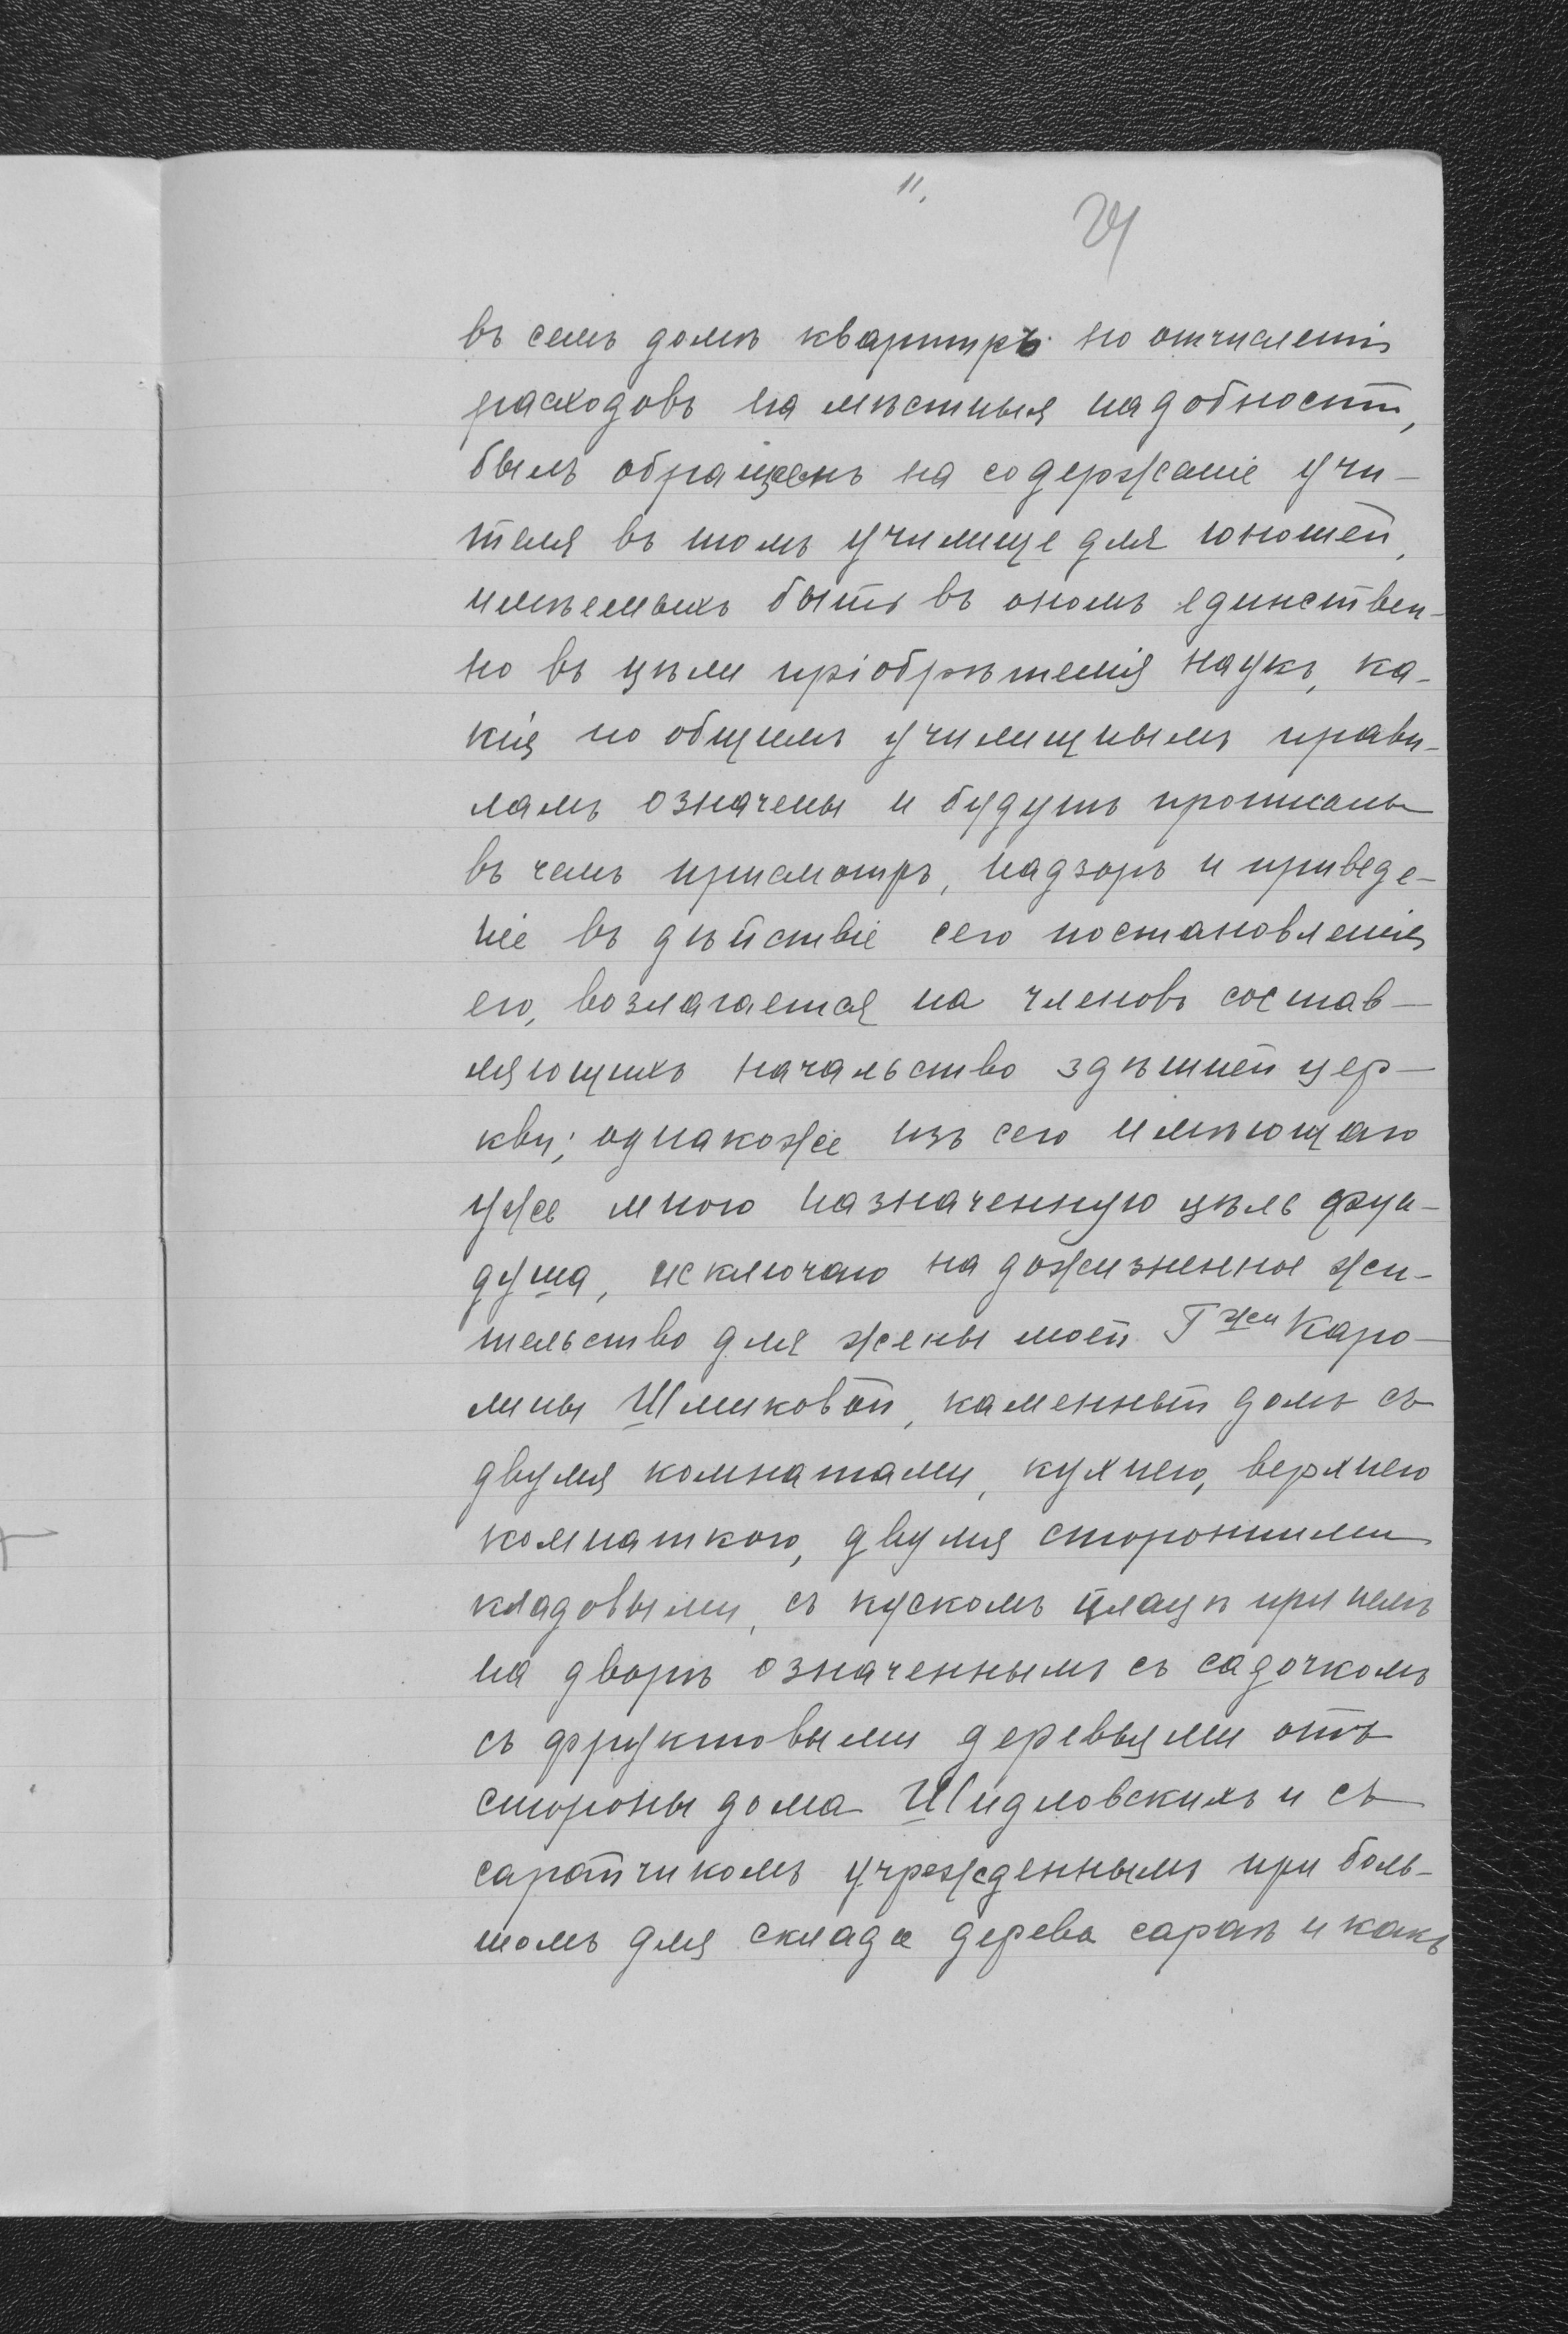 11.
24
въ семъ домѣ квартиръ по отчисленіи
расходовъ на мѣстныя надобности,
былъ обращенъ на содержаніе учи-
теля въ томъ училище для юношей,
имѣемыхъ быть въ ономъ единствен-
но въ цѣли пріобрѣтенія наукъ, ка-
кія по общимъ училищнымъ прави-
ламъ означены и будутъ прописаны
въ чемъ присмотръ, надзоръ и приведе-
ніе въ дѣйствіе сего постановленія
его, возлагается на членовъ состав-
ляющихъ начальство здѣшней цер-
кви; однакоже изъ сего имѣющаго
уже мною назначенную цѣль фун-
душа, исключаю на дожизненное жи-
тельство для жены моей Гжи Каро-
лины Шликовой, каменный домъ съ
двумя комнатами, кухнею, верхнею
комнаткою, двумя сторонними
кладовыми, съ кускомъ плацу при немъ
на дворѣ означеннымъ съ садочкомъ
съ фруктовыми деревьями отъ
стороны дома Шидловскихъ и съ
сарайчикомъ учрежденнымъ при боль-
шомъ для склада дерева сараѣ и какъ